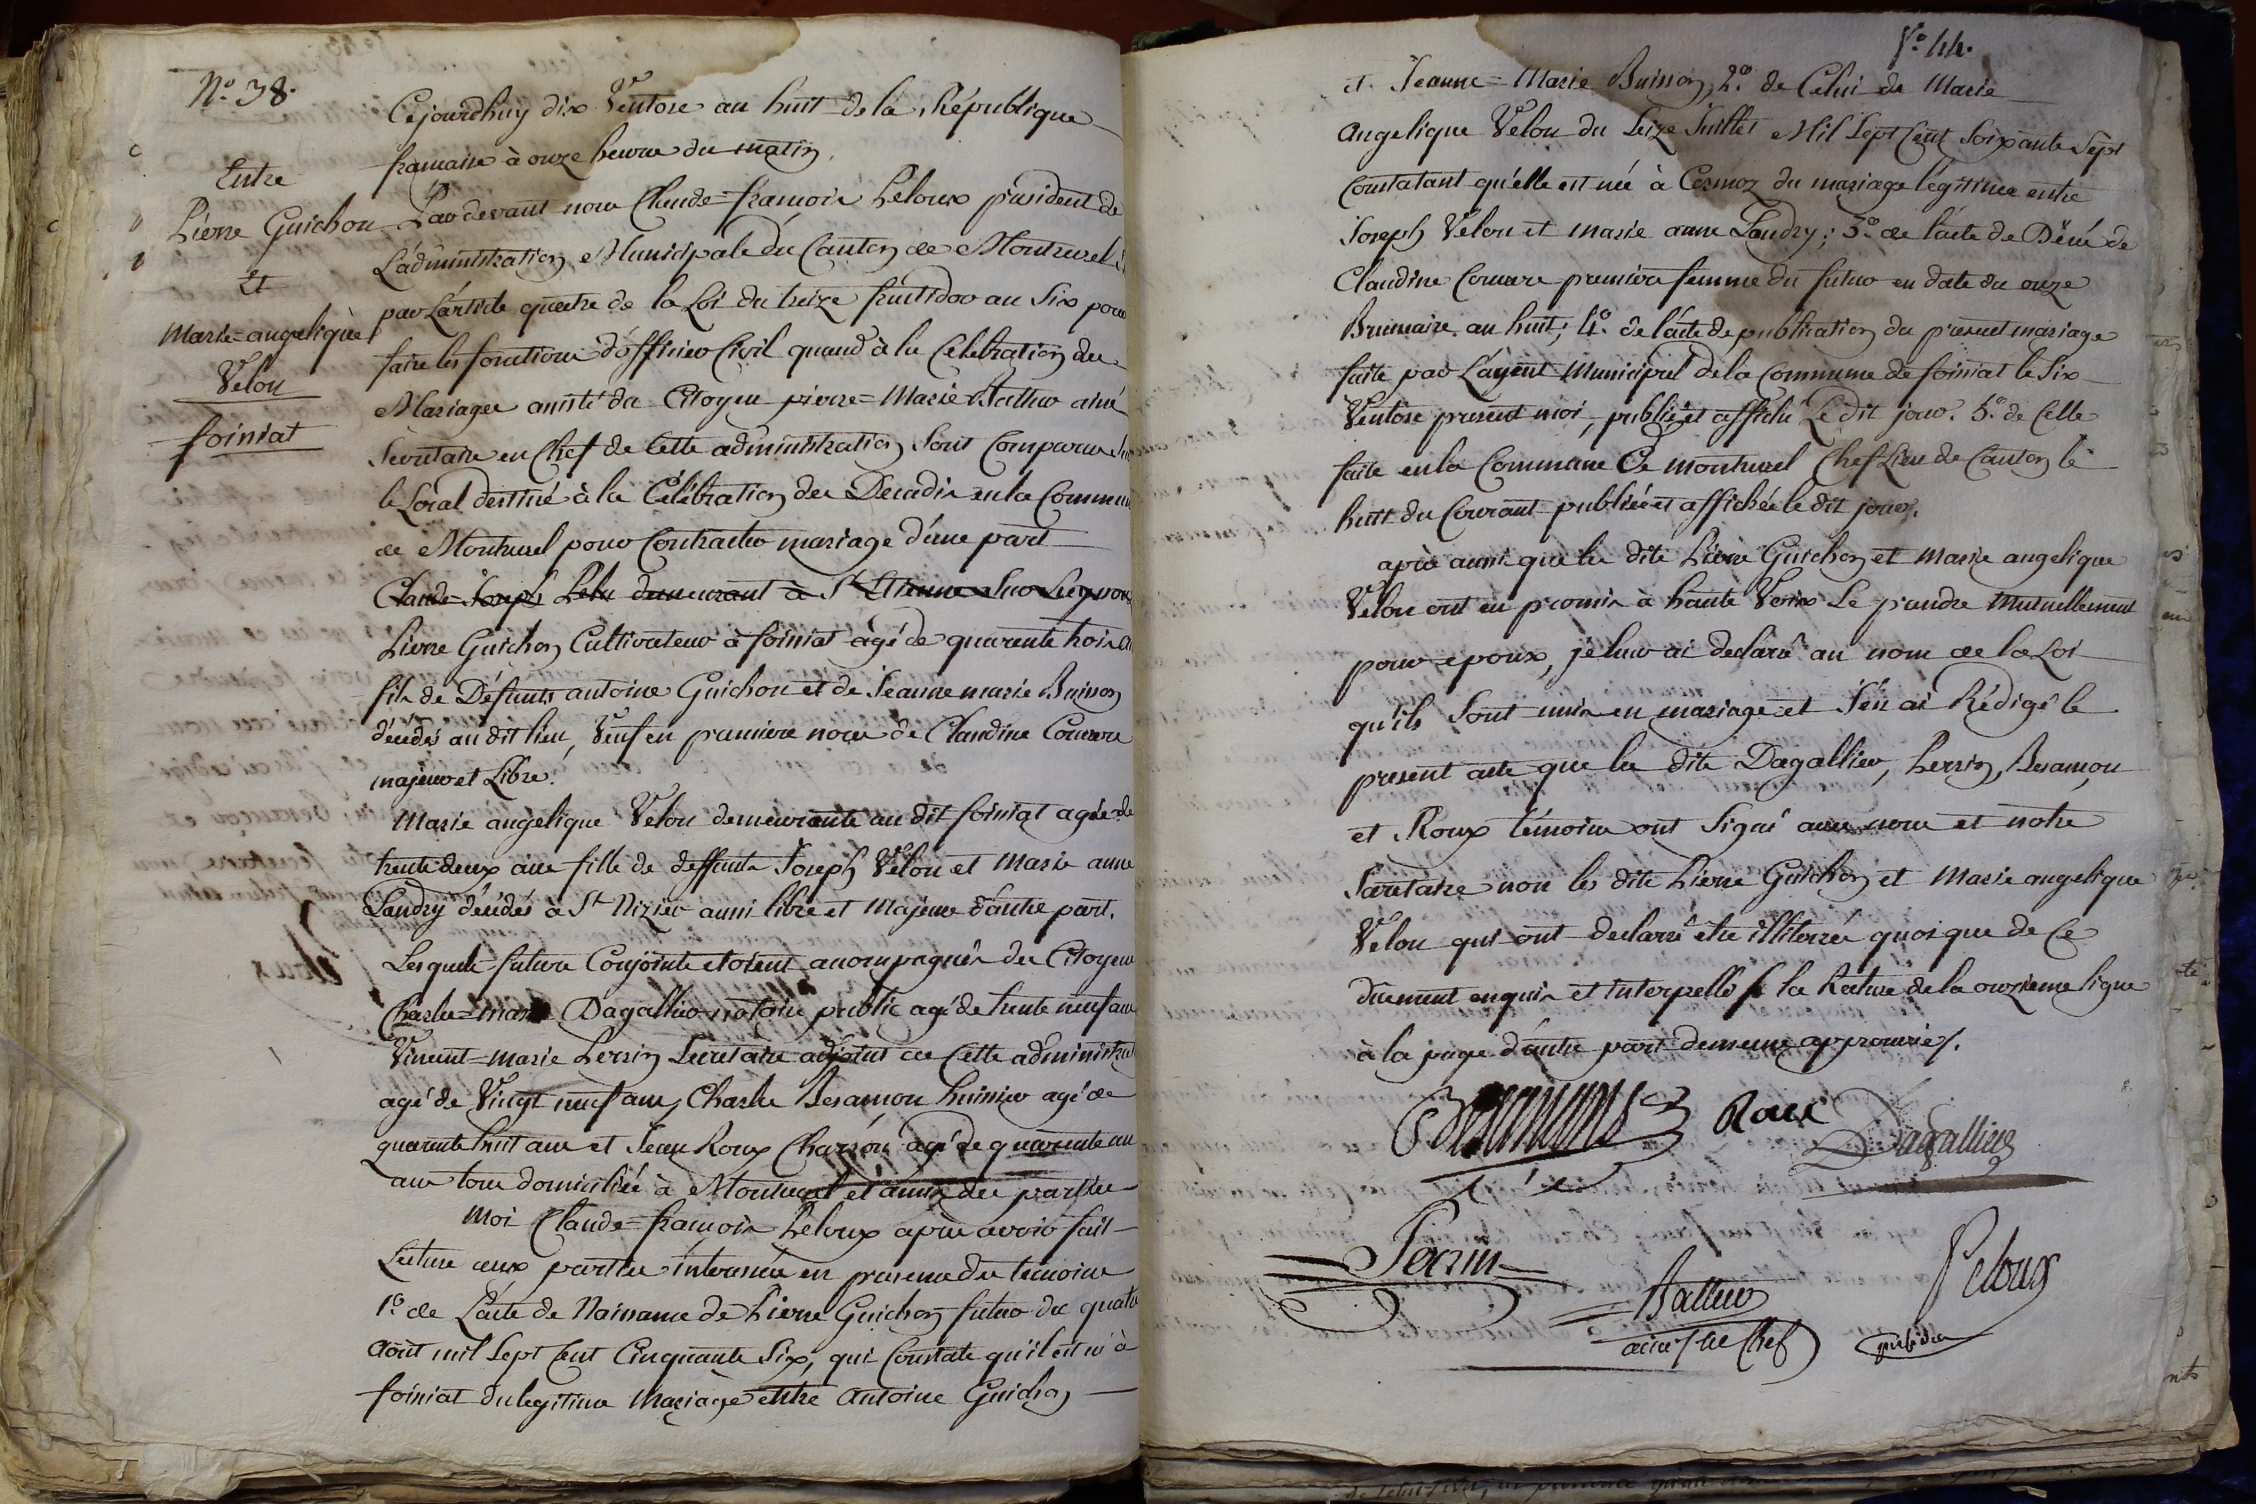 N.º 38.
Entre
Pierre Guichon
Et
Marie=angelique
Velon
foissiat
Cejourdhuy dix Ventose an huit de la République
francaise à onze heures du matin,
Pardevant nous Claude=francois Peloux président de
L'administration Municipale du Canton de Montrevel
par L'article quatre de la Loi du treize fructidor an Six pour
faire les fonctions d'officier Civil quand à la Celebration des
Mariages assisté du Citoyen pierre=Marie ainé
Secretaire en Chef de Cette administration Sont Comparus
le Local destiné à la Célébration des Decadis en la Commune
de Montrevel pour Contracter mariage d'une part
Claude=Joseph demeurant à St Etienne
Pierre Guichon Cultivateur à foissiat agé de quarante trois ans
fils de Défunts antoine Guichon et de Jeanne marie Buisson
décédés au dit lieu, Veuf en premiere noces de Claudine
majeur et Libre.
Marie angelique Velon demeurante au dit foissiat agée de
trente deux ans fille de deffunts Joseph Velon et Marie anne
Landry décédés à St Nizier aussi libre et Majeure d'autre part.
Lesquels futurs Conjoints étoient accompagnés des Citoyens
Charles=marie Dagallier notaire public agé de trente neuf ans
Vincent=marie Perrin Secretaire adjoint de Cette administrat
agé de Vingt neuf ans, Charles Besançon huissier agé de
quarante huit ans et Jean Roux Charron agé de quarante un
ans tous domiciliés à Montrevel et amis des parties
Moi Claude=francois Peloux apres avoir fait
Lecture aux parties interessées en presence des temoins
1.º de L'acte de Naissance de Pierre Guichon futur du quatre
aoust mil Sept Cent Cinquante Six, qui Constate qu'il est né à
foissiat du legitime Mariage entre antoine Guichon
f.º 44.
et Jeanne=Marie Buisson, 2.º de Celui de Marie
angelique Velon du Seize Juillet Mil Sept Cent Soixante Sept
Constatant qu'elle est née à Cormoz du mariage légitime entre
Joseph Velon et marie anne Landry; 3.º de l'acte de Décé de
Claudine premiere femme du futur en date du onze
Brumaire an huit; 4.º de l'acte de publication du present mariage
faite par L'agent Municipal de la Commune de foissiat le Six
Ventose present mois, publié et affiché Le dit jour. 5.º de Celle
faite en la Commune de montrevel Chef Lieu de Canton le
huit du Courant publiée et affichée le dit jour.
après aussi que les dits Pierre Guichon et Marie angelique
Velon ont eu promis à haute Voix Se prendre Mutuellement
pour epoux, je leur ai declaré au nom de la Loi
qu'ils Sont unis en mariage et J'en ai Rédigé le
present acte que les dits Dagallier, Perrin, Besançon
et Roux témoins ont Signé avec nous et notre
Secretaire non les dits Pierre Guichon et Marie angelique
Velon qui ont declaré etre illiterés quoique de Ce
duement enquis et Interpellé la Rature de la onzieme ligne
à la page d'autre part demeure approuvée.
Besançons Roux
Dagallier
Perrin
Peloux
en Chef